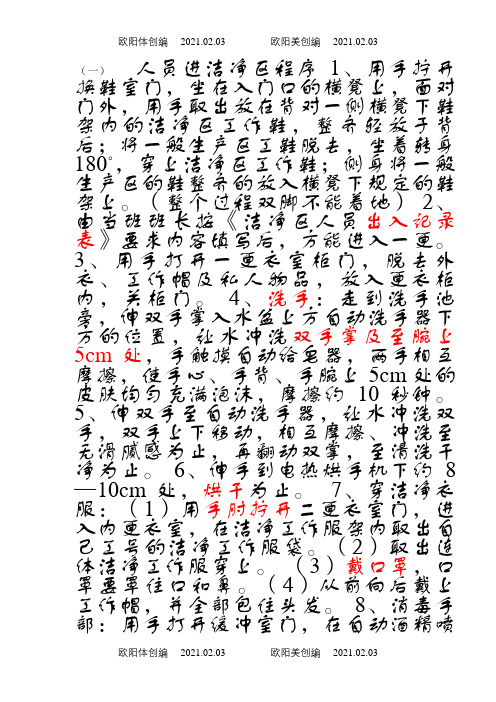 欧阳体创编 2021.02.03 欧阳美创编 2021.02.03
(一) 人员进洁净区程序 1、用手拧开
换鞋室门，坐在入门口的横凳上，面对
门外，用手取出放在背对一侧横凳下鞋
架内的洁净区工作鞋，整齐轻放于背
后；将一般生产区工鞋脱去，坐着转身
180°，穿上洁净区工作鞋；侧身将一般
生产区的鞋整齐的放入横凳下规定的鞋
架上。（整个过程双脚不能着地）2、
由当班班长按《洁净区人员出入记录
表》要求内容填写后，方能进入一更。
3、用手打开一更衣室柜门，脱去外
衣、工作帽及私人物品，放入更衣柜
内，关柜门。 4、洗手：走到洗手池
旁，伸双手掌入水盆上方自动洗手器下
方的位置，让水冲洗双手掌及至腕上
5cm 处，手触摸自动给皂器，两手相互
摩擦，使手心、手背、手腕上 5cm 处的
皮肤均匀充满泡沫，摩擦约 10 秒钟。
5、伸双手至自动洗手器，让水冲洗双
手，双手上下移动，相互摩擦、冲洗至
无滑腻感为止，再翻动双掌，至清洗干
净为止。 6、伸手到电热烘手机下约 8
—10cm 处，烘干为止。 7、穿洁净衣
服：（1）用手肘拧开二更衣室门，进
入内更衣室，在洁净工作服架内取出自
己工号的洁净工作服袋。（2）取出连
体洁净工作服穿上。（3）戴口罩，口
罩要罩住口和鼻。（4）从前向后戴上
工作帽，并全部包住头发。8、消毒手
部：用手打开缓冲室门，在自动酒精喷
欧阳体创编 2021.02.03 欧阳美创编 2021.02.03